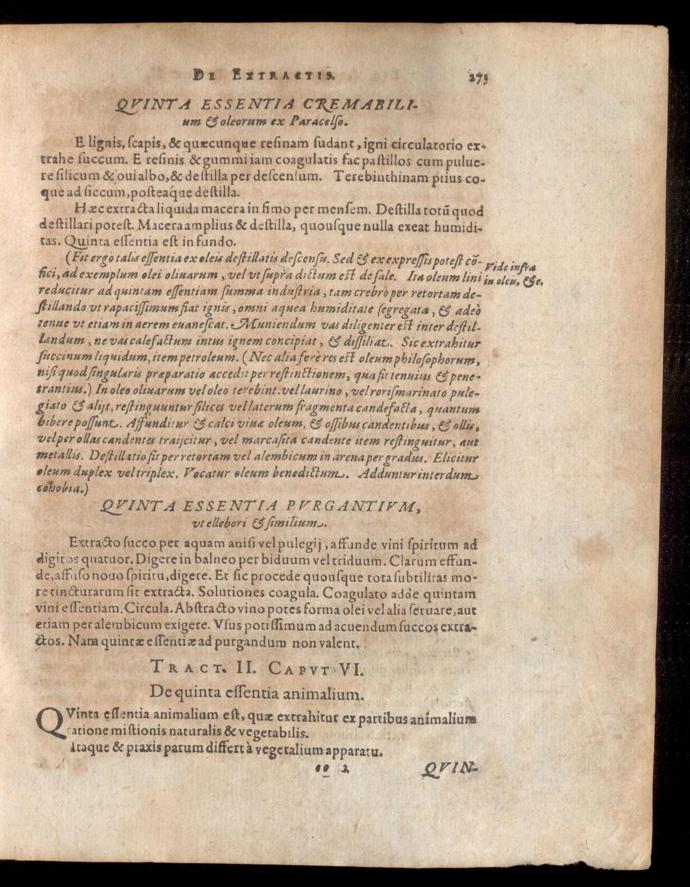 DE EXTRACTIS. 275
QVINTA ESSENTIA CREMABILI-
um & oleorum ex Paracelso.
E lignis, scapis, & quæcunque resinam sudant, igni circulatorio ex-
trahe succum. E resinis & gummi iam coagulatis fac pastillos cum pulue-
re silicum & oui albo, & destilla per descensum. Terebinthinam prius co-
que ad siccum, posteaque destilla.
Hæc extracta liquida macera in fimo per mensem. Destilla totũ quod
destillari potest. Macera amplius & destilla, quousque nulla exeat humidi-
tas. Quinta essentia est in fundo.
(Fit ergo talis essentia ex oleis destillatis descensu. Sed & ex expressis potest cõ-
fici, ad exemplum olei oliuarum, vel vt supra dictum est de sale. Ita oleum lini
Vide infra
in oleis, &c.
reducitur ad quintam essentiam summa industria, tam crebrò per retortam de-
stillando vt rapacissimum fiat ignis, omni aquea humiditate segregata, & adeò
tenue vt etiam in aerem euanescat. Muniendum vas diligenter est inter destil-
landum, ne vas calefactum intus ignem concipiat, & dissiliat. Sic extrahitur
succinum liquidum, item petroleum. (Nec alia ferè res est oleum philosophorum,
nisi quod singularis præparatio accedit per restinctionem, qua fit tenuius & pene-
trantius.) In oleo oliuarum vel oleo terebint. vel laurino, vel rorismarinato pule-
giato & alijs, restinguuntur silices vel laterum fragmenta candefacta, quantum
bibere possunt. Affunditur & calci viuæ oleum, & ossibus candentibus, & ollis,
vel per ollas candentes traijcitur, vel marcasita candente item restinguitur, aut
metallis. Destillatio fit per retortam vel alembicum in arena per gradus. Elicitur
oleum duplex vel triplex. Vocatur oleum benedictum. Adduntur interdum
cohobia.)
QVINTA ESSENTIA PVRGANTIVM,
vt ellebori & similium.
Extracto succo per aquam anisi vel pulegij, affunde vini spiritum ad
digitos quatuor. Digere in balneo per biduum vel triduum. Clarum effun-
de, affuso nouo spiritu, digere. Et sic procede quousque tota subtilitas mo-
re tincturarum sit extracta. Solutiones coagula. Coagulato adde quintam
vini essentiam. Circula. Abstracto vino potes forma olei vel alia seruare, aut
etiam per alembicum exigere. Vsus potissimum ad acuendum succos extra-
ctos. Nam quintæ essentiæ ad purgandum non valent.
TRACT. II. CAPVT VI.
De quinta essentia animalium.
QVinta essentia animalium est, quæ extrahitur ex partibus animalium
ratione mistionis naturalis & vegetabilis.
Itaque & praxis parum differt à vegetalium apparatu.
2 QVIN-